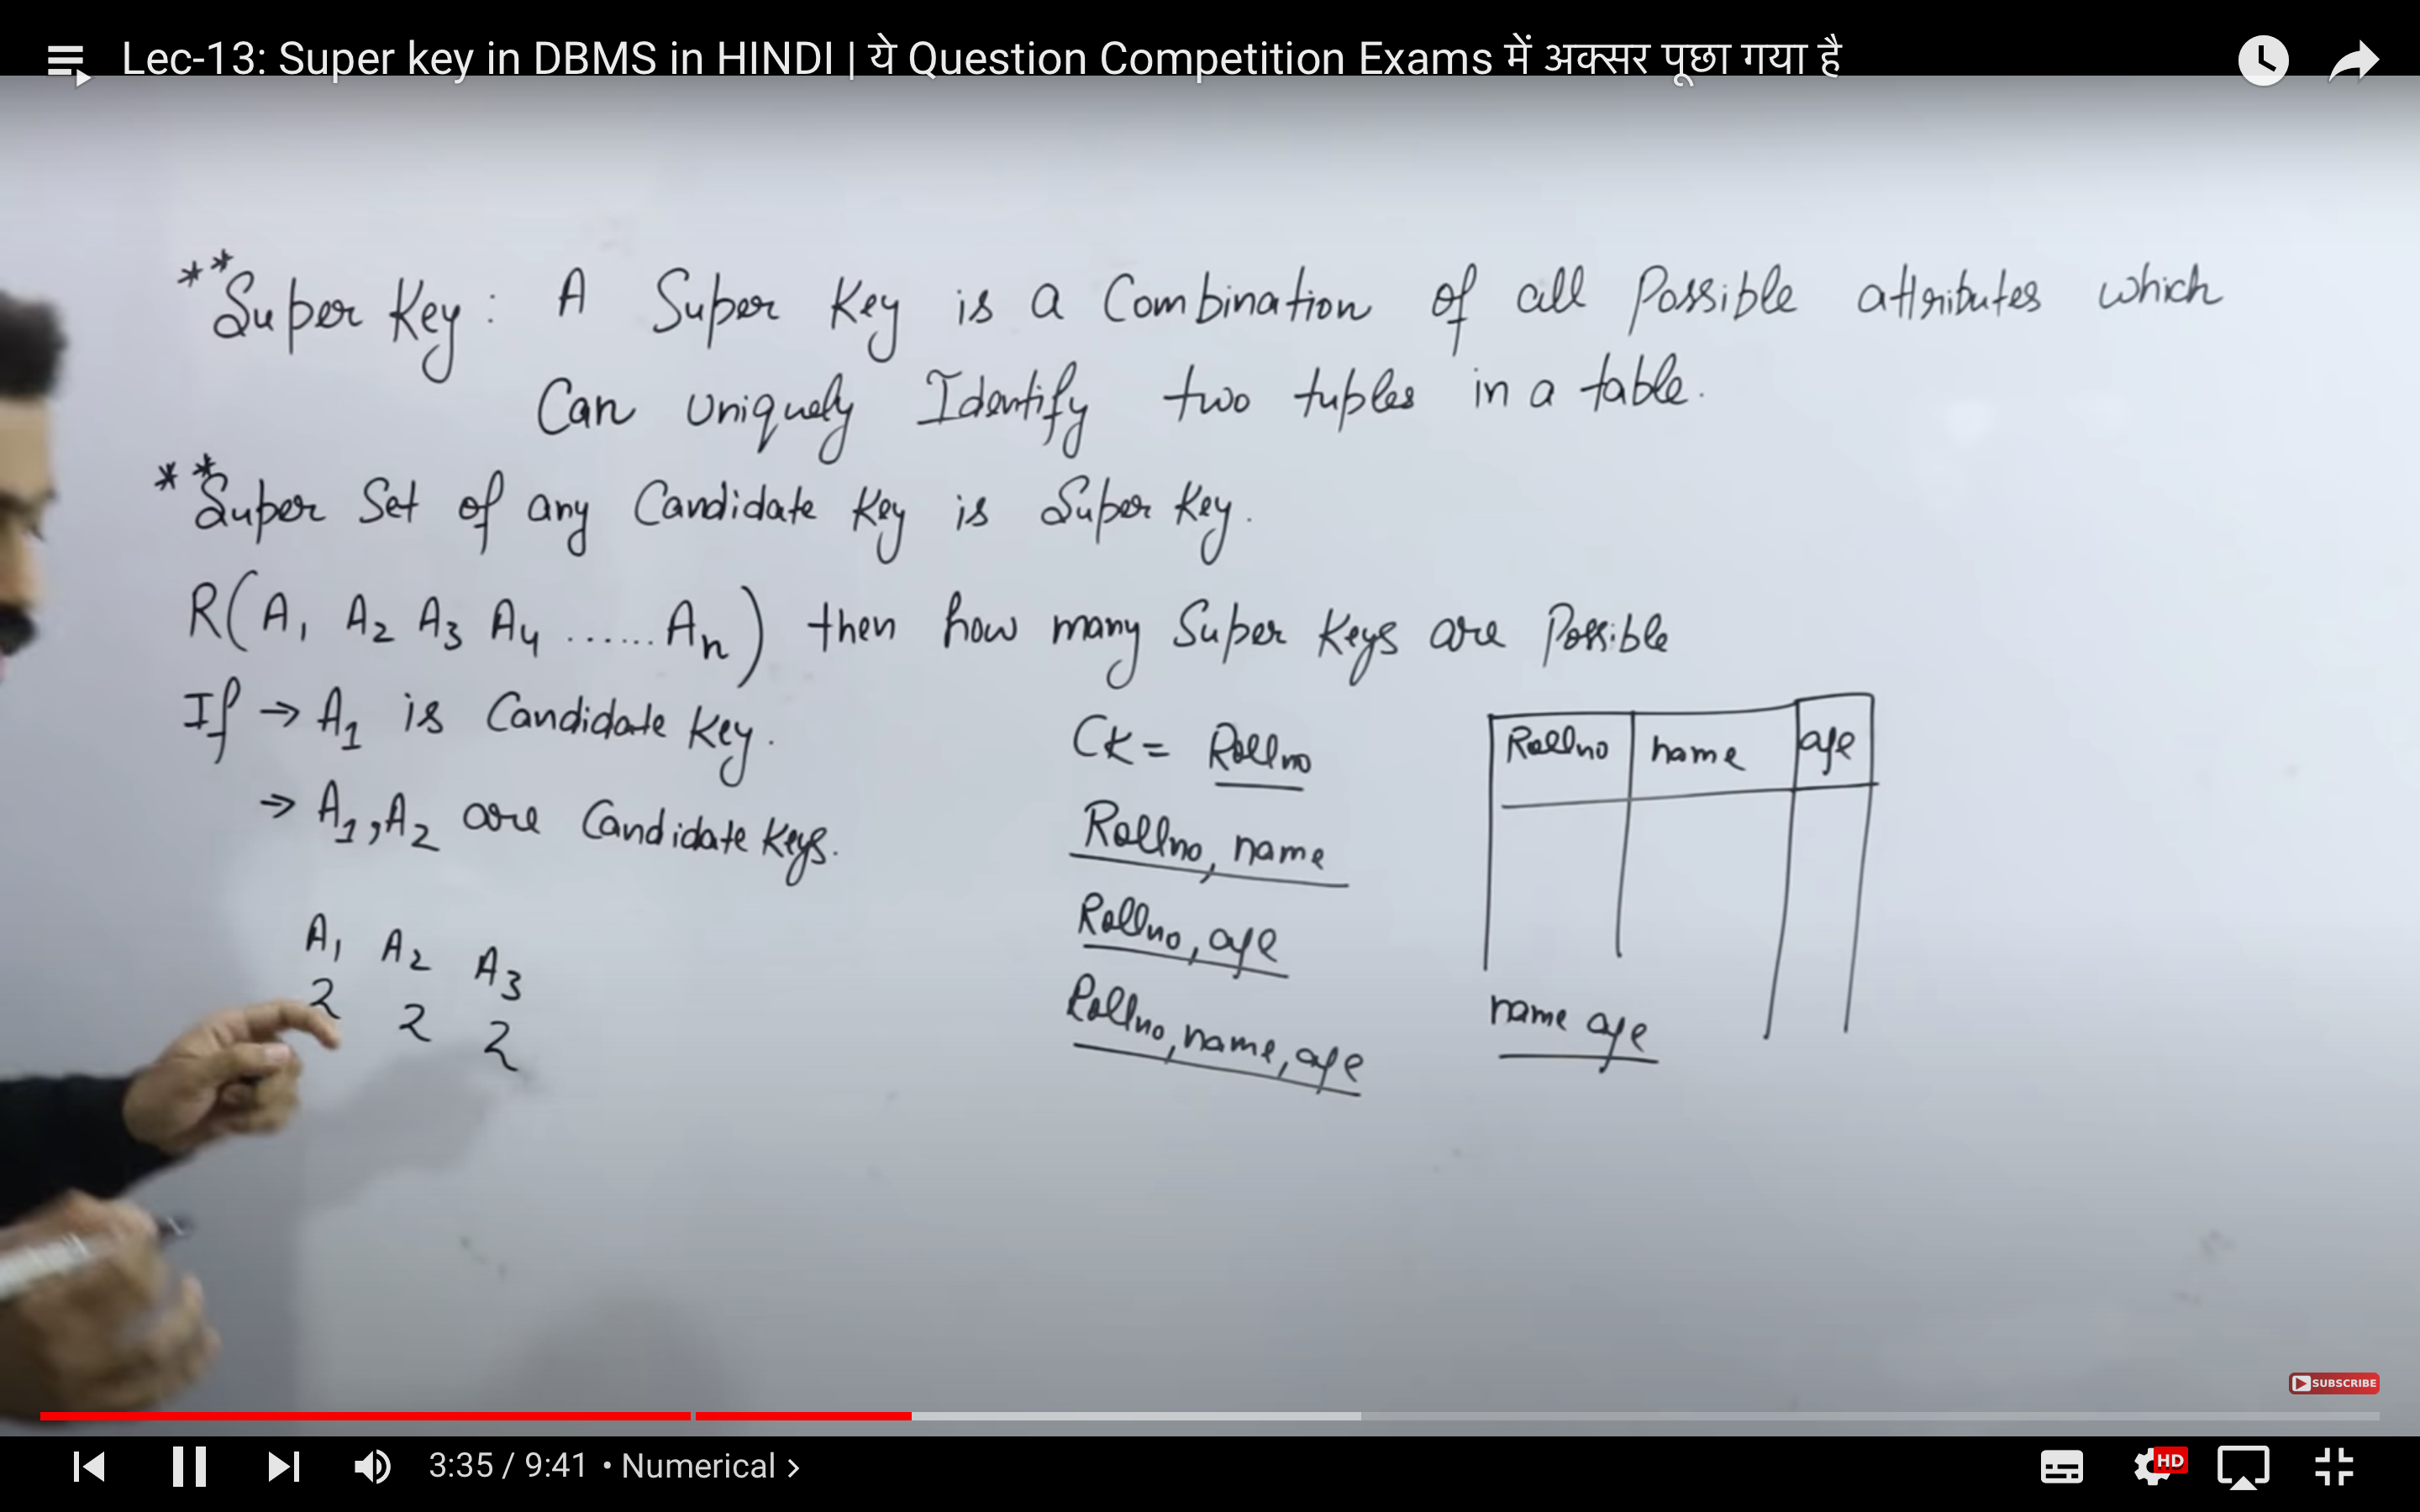 Lec-13: Super key in DBMS in HINDI | ये Question Competition Exams में अक्सर पूछा गया है
**Super Key: A Super Key is a Combination of all Possible attributes which
Can Uniquely Identify two tuples in a table.
**Super Set of any Candidate Key is Super Key.
R(A1 A2 A3 A4 ...... An) then how many Super Keys are Possible
If → A1 is Candidate Key.
→ A1, A2 are Candidate Keys.
A1 A2 A3
2 2 2
CK = Rollno
Rollno, name
Rollno, age
Rollno, name, age
Rollno name age
name age
SUBSCRIBE
3:35 / 9:41 • Numerical >
HD